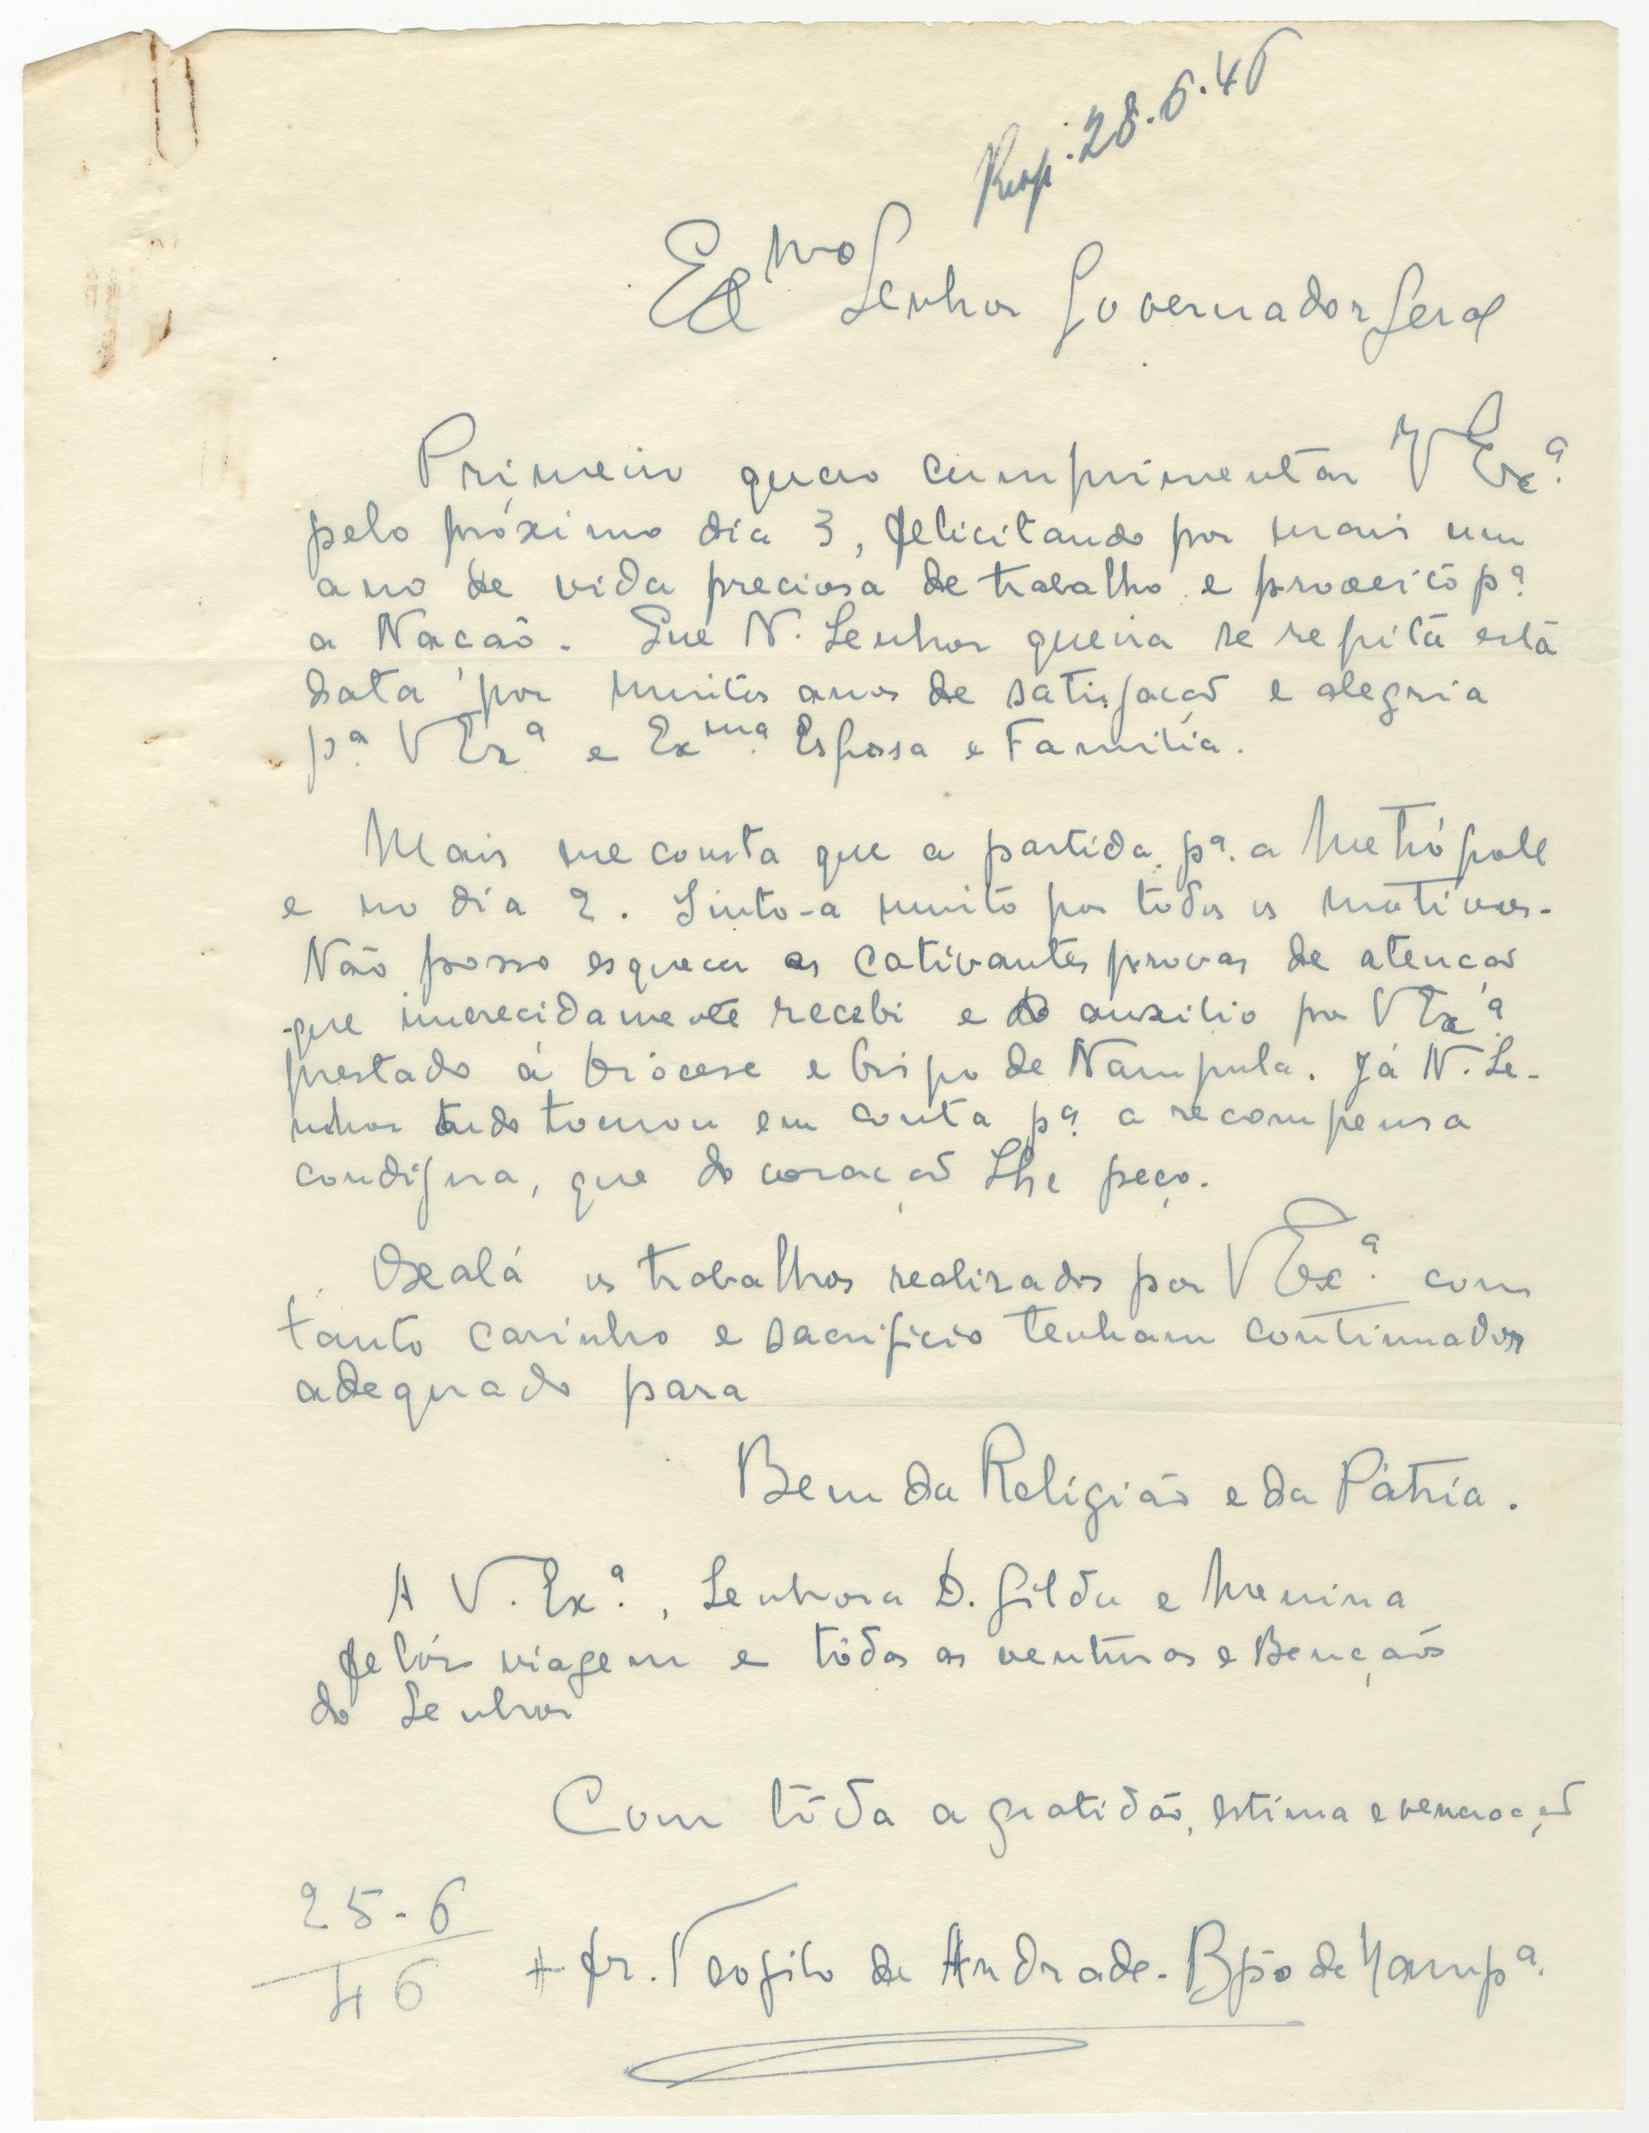 Resp: 28.6.46
Exmo Senhor Governador Geral
Primeiro quero cumprimentar V Exª.
pelo próximo dia 3, felicitando por mais um
ano de vida preciosa de trabalho e proveito pª
a Nação. Que N. Senhor queira se repita esta
data por muitos anos de satisfação e alegria
pª. V Exª e Exma. Esposa e Família.
Mais me consta que a partida pª. a Metrópole
e no dia 2. Sinto-a muito por todos os motivos.
Não posso esquecer as cativantes provas de atenção
que imerecidamente recebi e o auxilio por V Exª.
prestado á Diócese e Bispo de Nampula. Já N. Se-
nhor tudo tomou em conta pª. a recompensa
condigna, que do coração Lhe peço.
Oxalá os trabalhos realizados por V Exª. com
tanto carinho e sacrificio tenham continuador
adequado para
Bem da Religião e da Pátria.
A V. Exª., Senhora D. Gilda e Menina
felís viagem e tôdas as venturas e Bençãos
do Senhor
Com tôda a gratidão, estima e veneração
25-6
46
+ fr. Teofilo de Andrade - Bpo de Nampª.